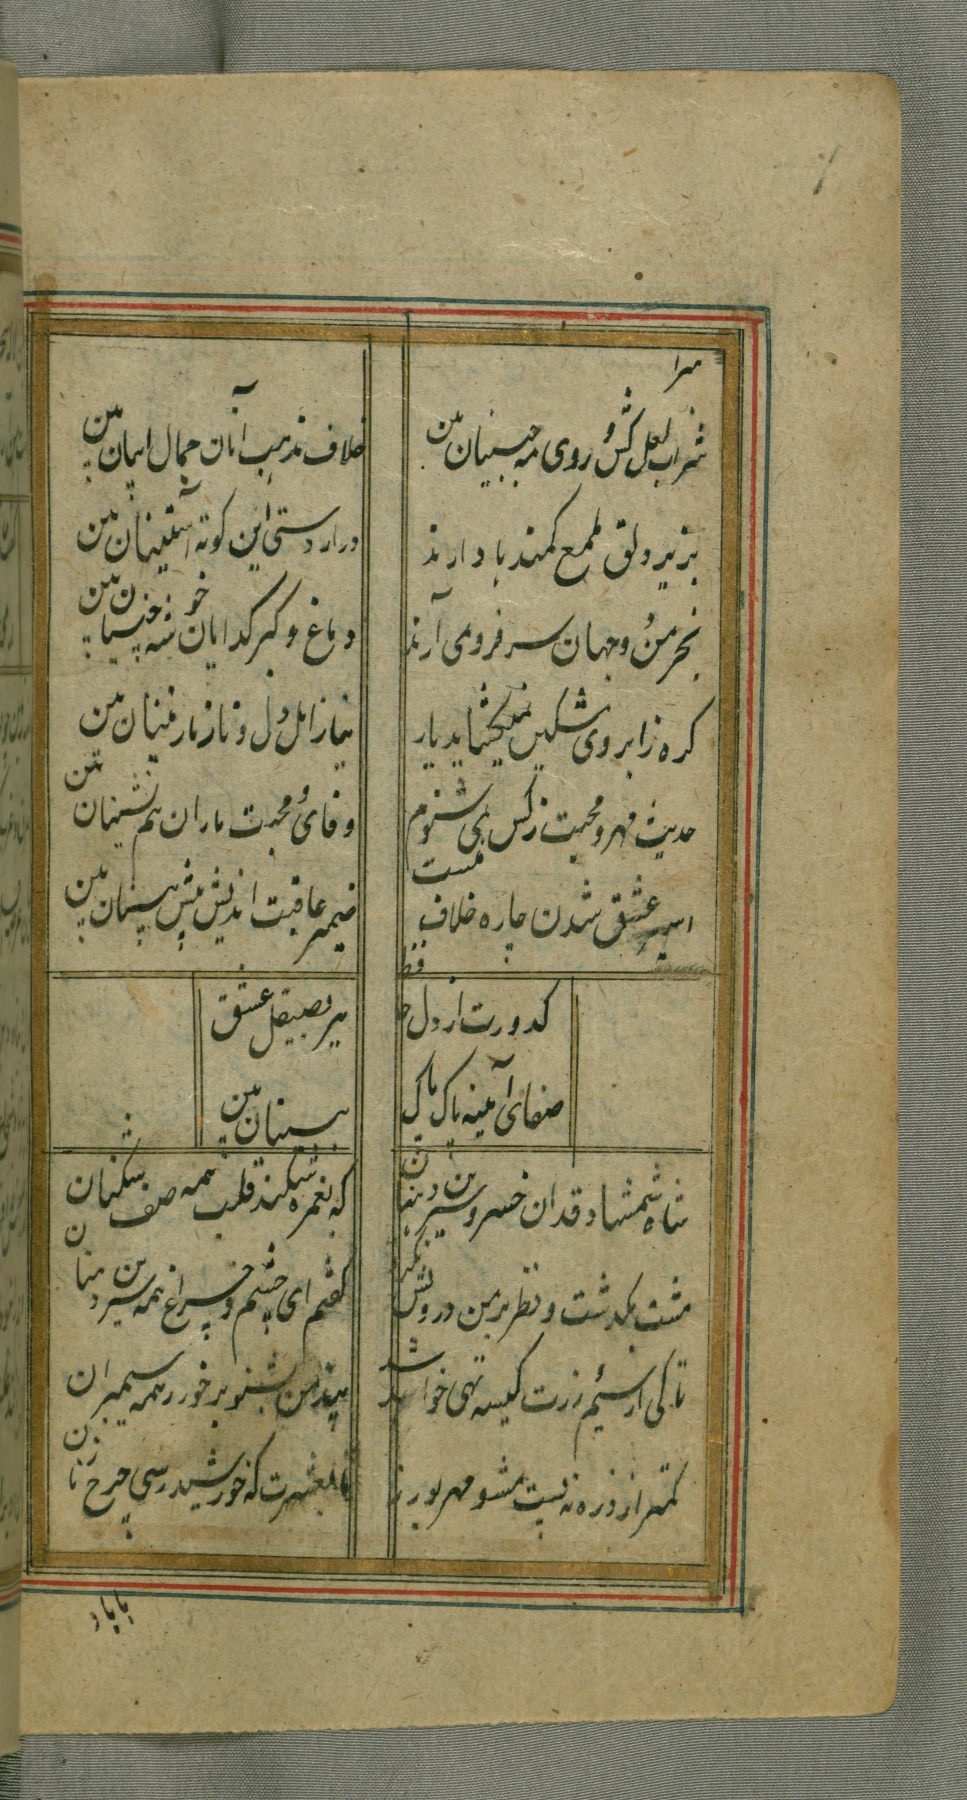 شراب لعل کش و روی مه جبینان بین
خلاف مذهب آنان جمال اینان بین
بزیر دلق ملمع کمندها دارند
درازدستی این کوته آستینان بین
بخرمن دو جهان سر فرو نمی آرند
دماغ و کبر گدایان و خوشه چینان بین
گره ز ابروی مشکین نمیگشاید یار
نیاز اهل دل و ناز نازنینان بین
حدیث مهر و محبت ز کس نمی شنوم
وفای و محبت یاران هم نشینان بین
اسیر عشق شدن چاره خلاف منست
ضمیر عاقبت اندیش پیش بینان بین
کدورت از دل حافظ
ببر بصیقل عشق
صفای آینه پاک پاک
بینان بین
شاه شمشاد قدان خسرو شیرین دهنان
که بغمزه شکند قلب همه صف شکنان
مست بگذشت و نظر بر من درویش
گفتم ای چشم و چراغ همه شیرین دهنان
تا کی از سیم زرت کیسه تهی خواهد شد
پند من بشنو برخور ز همه سیمبران
کمتر از ذره نه پست مشو مهر بورز
تا بعشرت که خورشید رسی چرخ زنان